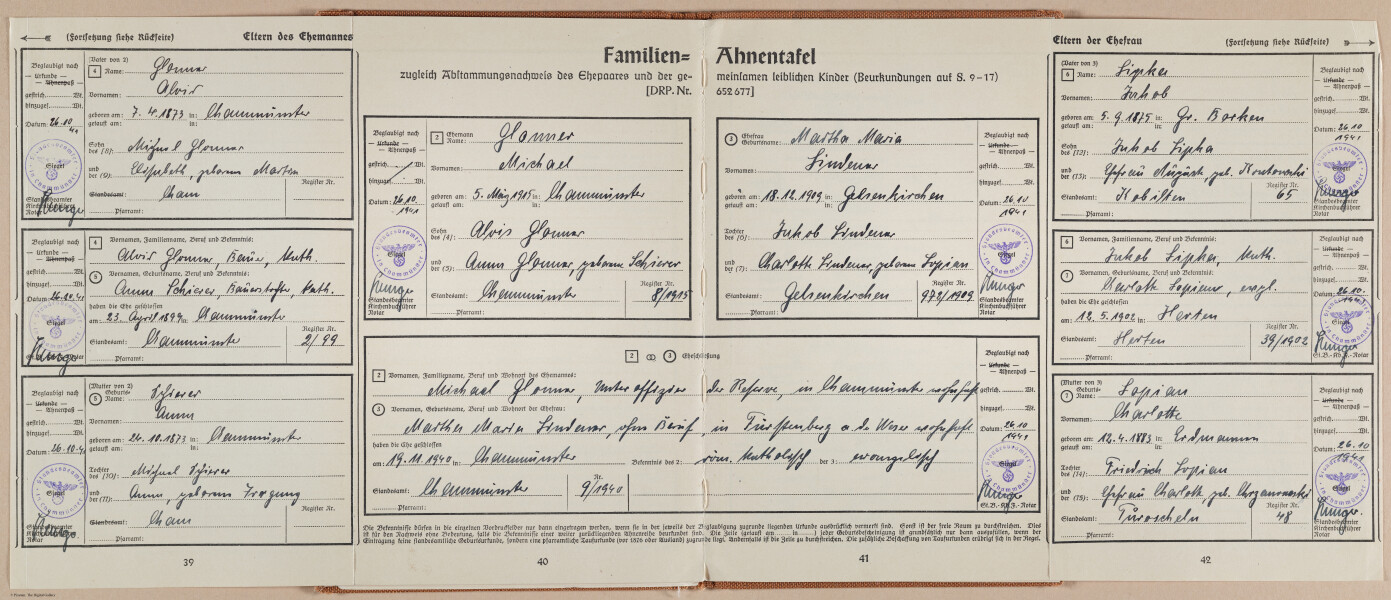 (Fortsetzung siehe Rückseite) Eltern des Ehemannes
Beglaubigt nach
— Urkunde —
— Ahnenpaß
gestrich. Wt.
hinzugef. Wt.
Datum: 26.10
41
Siegel
Standesbeamter
Kirchenbuchführer
Notar
(Vater von 2)
4 Name: Glonner
Vornamen: Alois
geboren am: 7.4.1873 in: Chammünster
getauft am: in:
Sohn des (8): Michael Glonner
und der (9): Elisabeth, geborene
Register Nr.
Standesamt: Cham
Pfarramt:
Beglaubigt nach
— Urkunde —
— Ahnenpaß
gestrich. Wt.
hinzugef. Wt.
Datum: 26.10.41
Siegel
Standesbeamter
Kirchenbuchführer
Notar
4 Vornamen, Familienname, Beruf und Bekenntnis:
Alois Glonner, Bauer, kath.
5 Vornamen, Geburtsname, Beruf und Bekenntnis:
Anna Schierer, Bauerstochter, kath.
haben die Ehe geschlossen
am: 23. April 1899 in: Chammünster
Register Nr.
Standesamt: Chammünster 2/99
Pfarramt:
Beglaubigt nach
— Urkunde —
— Ahnenpaß
gestrich. Wt.
hinzugef. Wt.
Datum: 26.10.4
Siegel
Standesbeamter
Kirchenbuchführer
Notar
(Mutter von 2)
5 Geburts-Name: Schierer
Vornamen: Anna
geboren am: 24.10.1873 in: Chammünster
getauft am: in:
Tochter des (10): Michael Schierer
und der (11): Anna, geborene
Register Nr.
Standesamt: Cham
Pfarramt:
39
Familien= Ahnentafel
zugleich Abstammungsnachweis des Ehepaares und der gemeinsamen leiblichen Kinder (Beurkundungen auf S. 9-17)
[DRP. Nr. 652 677]
Beglaubigt nach
— Urkunde —
— Ahnenpaß
gestrich. Wt.
hinzugef. Wt.
Datum: 26.10.
1941
Siegel
Standesbeamter
Kirchenbuchführer
Notar
2 Ehemann
Name: Glonner
Vornamen: Michael
geboren am: 5. März 1915 in: Chammünster
getauft am: in:
Sohn des (4): Alois Glonner
und der (5): Anna Glonner, geborene Schierer
Register Nr.
Standesamt: Chammünster 8/1915
Pfarramt:
3 Ehefrau
Geburtsname: Martha Maria
Vornamen: Lindener
geboren am: 18.12.1909 in: Gelsenkirchen
getauft am: in:
Tochter des (6): Jakob Lindener
und der (7): Charlotte Lindener, geborene Sopian
Register Nr.
Standesamt: Gelsenkirchen 972/1909
Pfarramt:
Beglaubigt nach
— Urkunde —
— Ahnenpaß
gestrich. Wt.
hinzugef. Wt.
Datum: 26.10
1941
Siegel
Standesbeamter
Kirchenbuchführer
Notar
2 ∞ 3 Eheschließung
2 Vornamen, Familienname, Beruf und Wohnort des Ehemannes:
Michael Glonner, Unteroffizier der Reserve, in Chammünster wohnhaft
3 Vornamen, Geburtsname, Beruf und Wohnort der Ehefrau:
Martha Maria Lindener, ohne Beruf, in Fürstenberg a. d. Weser wohnhaft
haben die Ehe geschlossen
am: 19.11.1940 in: Chammünster Bekenntnis des 2: röm. katholisch der 3: evangelisch
Nr.
Standesamt: Chammünster 9/1940
Pfarramt:
Beglaubigt nach
— Urkunde —
— Ahnenpaß
gestrich. Wt.
hinzugef. Wt.
Datum: 26.10
1941
Siegel
St.B.-Kb.F.-Notar
Die Bekenntnisse dürfen in die einzelnen Vordruckfelder nur dann eingetragen werden, wenn sie in der jeweils der Beglaubigung zugrunde liegenden Urkunde ausdrücklich vermerkt sind. Sonst ist der freie Raum zu durchstreichen. Dies
ist für den Nachweis ohne Bedeutung, falls die Bekenntnisse einer weiter zurückliegenden Ahnenreihe beurkundet sind. Die Zeile (getauft am in) jeder Geburtsbescheinigung ist grundsätzlich nur dann auszufüllen, wenn der
Eintragung keine standesamtliche Geburtsurkunde, sondern eine pfarramtliche Taufurkunde (vor 1876 oder Ausland) zugrunde liegt. Andernfalls ist die Zeile zu durchstreichen. Die zusätzliche Beschaffung von Taufurkunden erübrigt sich in der Regel.
40
41
Eltern der Ehefrau (Fortsetzung siehe Rückseite)
(Vater von 3)
6 Name: Lipka
Vornamen: Jakob
geboren am: 5.9.1875 in: Gr. Borken
getauft am: in:
Sohn des (12): Jakob Lipka
und der (13): Ehefrau Auguste geb.
Register Nr.
Standesamt: Kobulten 65
Pfarramt:
Beglaubigt nach
— Urkunde —
— Ahnenpaß
gestrich. Wt.
hinzugef. Wt.
Datum: 26.10
1941
Siegel
Standesbeamter
Kirchenbuchführer
Notar
6 Vornamen, Familienname, Beruf und Bekenntnis:
Jakob Lipka, kath.
7 Vornamen, Geburtsname, Beruf und Bekenntnis:
Charlotte Sopian, evgl.
haben die Ehe geschlossen
am: 12.5.1902 in: Herten
Register Nr.
Standesamt: Herten 39/1902
Pfarramt:
Beglaubigt nach
— Urkunde —
— Ahnenpaß
gestrich. Wt.
hinzugef. Wt.
Datum: 26.10.
1941
Siegel
St.B.-Kb.F.-Notar
(Mutter von 3)
7 Geburts-Name: Sopian
Vornamen: Charlotte
geboren am: 12.4.1883 in: Erdmannen
getauft am: in:
Tochter des (14): Friedrich Sopian
und der (15): Ehefrau Charlotte, geb. Chrzanowski
Register Nr.
Standesamt: Turoscheln 48
Pfarramt:
Beglaubigt nach
— Urkunde —
— Ahnenpaß
gestrich. Wt.
hinzugef. Wt.
Datum: 26.10
1941
Siegel
Standesbeamter
Kirchenbuchführer
Notar
42